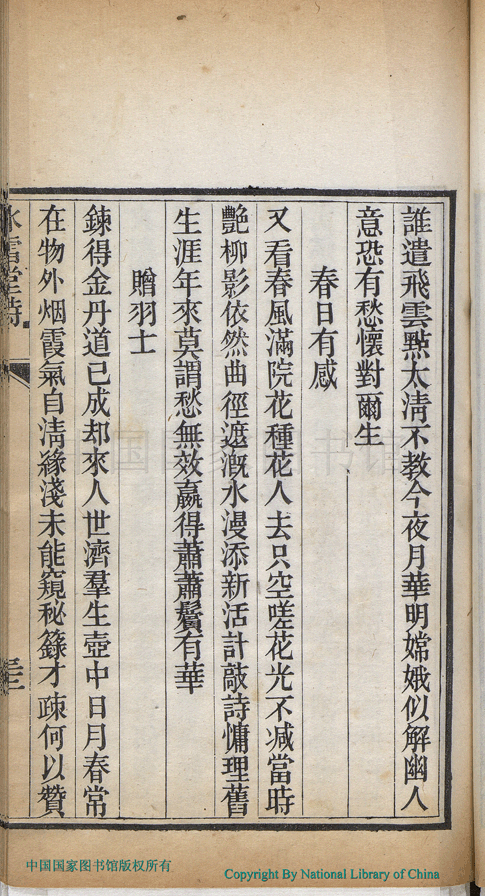 誰遣飛雲點太淸不教今夜月華明嫦娥似解幽人
意恐有愁懷對爾生
春日有感
又看春風滿院花種花人去只空嗟花光不減當時
艷柳影依然曲徑遮漑水漫添新活計敲詩慵理舊
生涯年來莫謂愁無效贏得蕭蕭鬢有華
贈羽士
鍊得金丹道已成却來人世濟羣生壺中日月春常
在物外烟霞氣自淸緣淺未能窺秘籙才疎何以贊
冰雪堂詩
中国国家图书馆
中国国家图书馆版权所有
Copyright By National Library of China